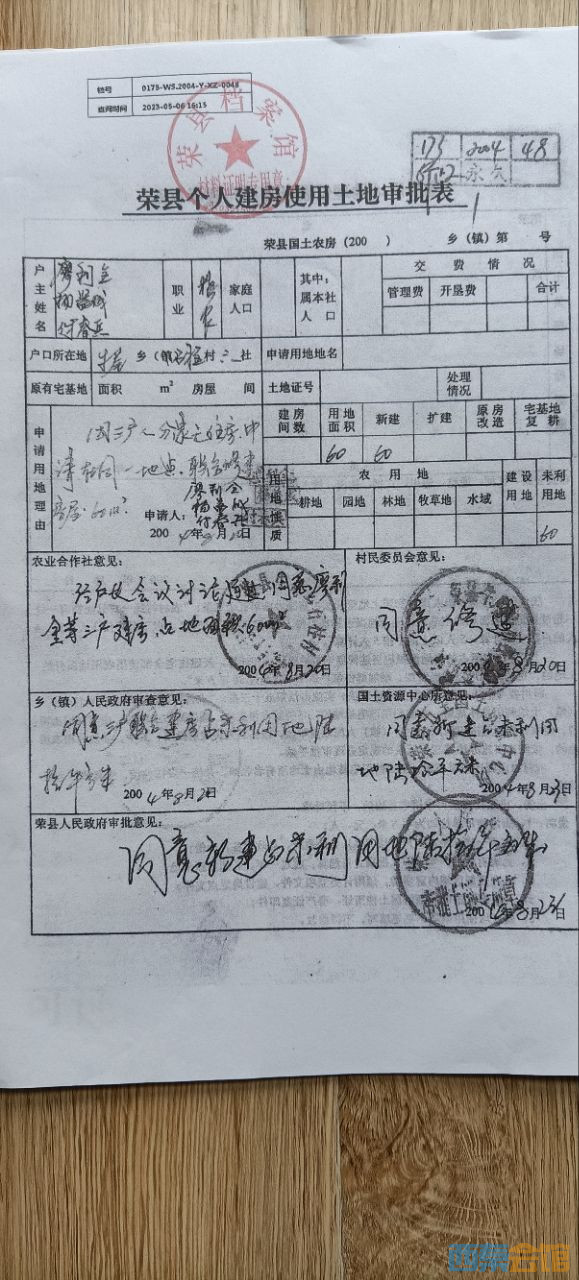 档号 0175-WS.2004-Y-XZ-0048
查阅时间 2023-05-06 16:15
荣县档案馆
材料证明专用章
175 2004 48
永久
荣县个人建房使用土地审批表
荣县国土农房(200 ) 乡(镇)第 号
户主姓名 廖利全
职业 务农 家庭人口 其中:属本社人口
交费情况
管理费 开垦费 合计
户口所在地 乡(镇) 村 社 申请用地地名
原有宅基地 面积 m² 房屋 间 土地证号 处理情况
申请用地理由
因三户人分家无住房.申
请在同一地点.联合修建
房屋.60m².
申请人: 廖利全
2004年8月20日
建房间数 用地面积 新建 扩建 原房改造 宅基地复耕
60 60
用地性质
农用地 建设用地 未利用地
耕地 园地 林地 牧草地 水域
60
农业合作社意见:
经户主会议讨论通过.同意廖利
全等三户建房占地面积60m²
2004年8月20日
村民委员会意见:
同意修建.
2004年8月20日
乡(镇)人民政府审查意见:
同意三户联合建房占未利用地陆
拾平方米
2004年8月2 日
国土资源中心所意见:
同意新建占未利用
地陆拾平方米
2004年8月23日
荣县人民政府审批意见:
同意新建占未利用地陆拾平方米.
2004年8月23日